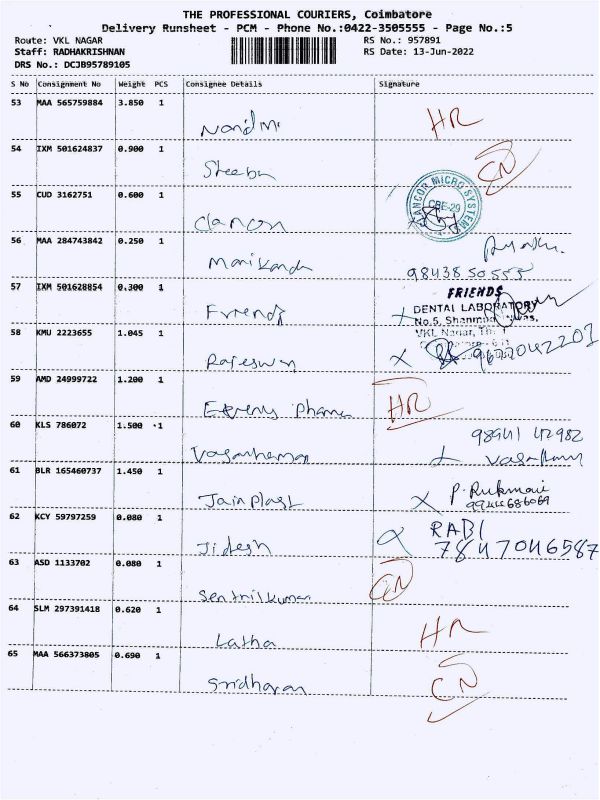 THE PROFESSIONAL COURIERS, Coimbatore
Delivery Runsheet - PCM - Phone No.:0422-3505555 - Page No.:5
Route: VKL NAGAR RS No.: 957891
Staff: RADHAKRISHNAN RS Date: 13-Jun-2022
DRS No.: DCJB95789105
S No Consignment No Weight PCS Consignee Details Signature
53 MAA 565759884 3.850 1
HR
54 IXM 501624837 0.900 1
CN
55 CUD 3162751 0.600 1
MICRO SYSTEM
CBE-29
56 MAA 284743842 0.250 1
Manikanda
9843850555
57 IXM 501628854 0.300 1
FRIENDS
DENTAL LABORATORY
Friends
No.5,
VKL Nagar,
58 KMU 2223655 1.045 1
Rajeswari
9600042201
59 AMD 24999722 1.200 1
HR
60 KLS 786072 1.500 1
98941 42982
61 BLR 165460737 1.450 1
Jainplast P. Rukmani
9944686069
62 KCY 59797259 0.080 1
RABI
Jidesh 7847046587
63 ASD 1133702 0.080 1
CN
Senthilkumar
64 SLM 297391418 0.620 1
Latha HR
65 MAA 566373805 0.690 1
Sridharan CN